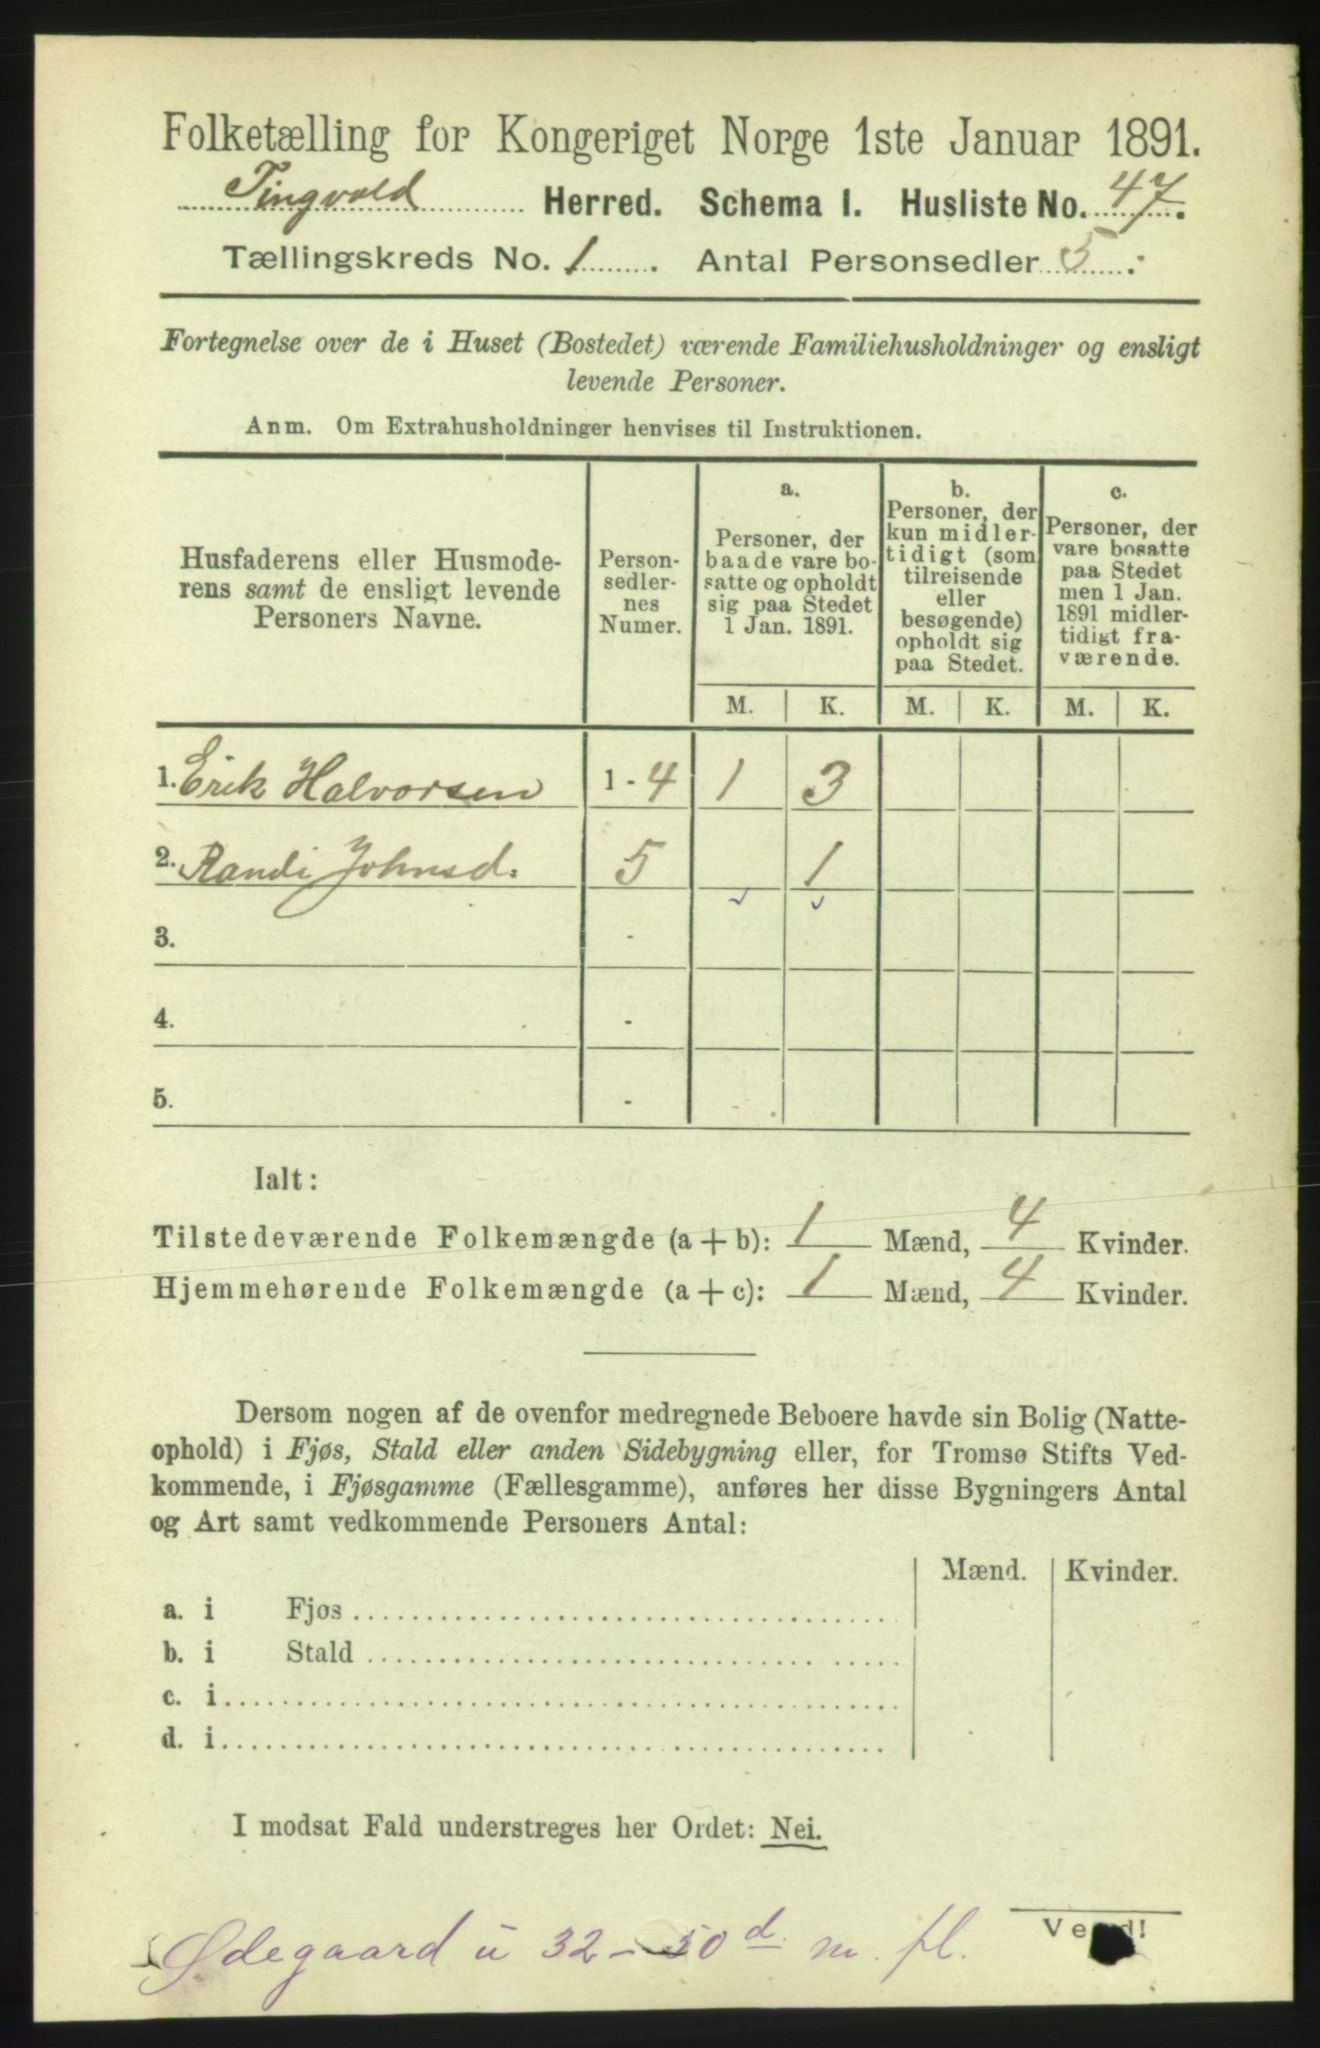 Folketælling for Kongeriget Norge 1ste Januar 1891.
Tingvold Herred. Schema I. Husliste No. 47.
Tællingskreds No. 1. Antal Personsedler 5.
Fortegnelse over de i Huset (Bostedet) værende Familiehusholdninger og ensligt
levende Personer.
Anm. Om Extrahusholdninger henvises til Instruktionen.
Husfaderens eller Husmode-
rens samt de ensligt levende
Personers Navne.
Person-
sedler-
nes
Numer.
a.
Personer, der
baade vare bo-
satte og opholdt
sig paa Stedet
1 Jan. 1891.
b.
Personer, der
kun midler-
tidigt (som
tilreisende
eller
besøgende)
opholdt sig
paa Stedet.
c.
Personer, der
vare bosatte
paa Stedet
men 1 Jan.
1891 midler-
tidigt fra-
værende.
M. K. M. K. M. K.
1. Erik Halvorsen 1 - 4 1 3
2. Randi Johnsd. 5 1
3. -
4. -
5. -
Ialt:
Tilstedeværende Folkemængde (a + b): 1 Mænd, 4 Kvinder.
Hjemmehørende Folkemængde (a + c): 1 Mænd, 4 Kvinder.
Dersom nogen af de ovenfor medregnede Beboere havde sin Bolig (Natte-
ophold) i Fjøs, Stald eller anden Sidebygning eller, for Tromsø Stifts Ved-
kommende, i Fjøsgamme (Fællesgamme), anføres her disse Bygningers Antal
og Art samt vedkommende Personers Antal:
Mænd. Kvinder.
a. i Fjøs
b. i Stald
c. i
d. i
I modsat Fald understreges her Ordet: Nei.
Vend!
Ødegaard u 32 - 50 d. m. fl.